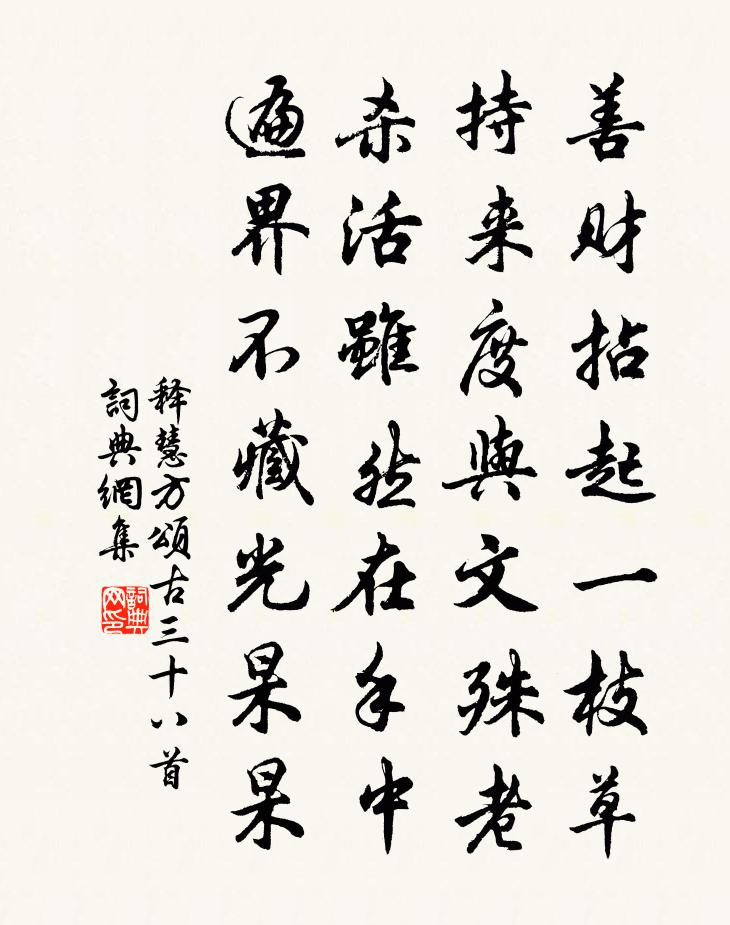 善财拈起一枝草
持来度與文殊老
杀活雖然在手中
遍界不藏光杲杲
释慧方頌古三十八首
詞典網集
詞典网印